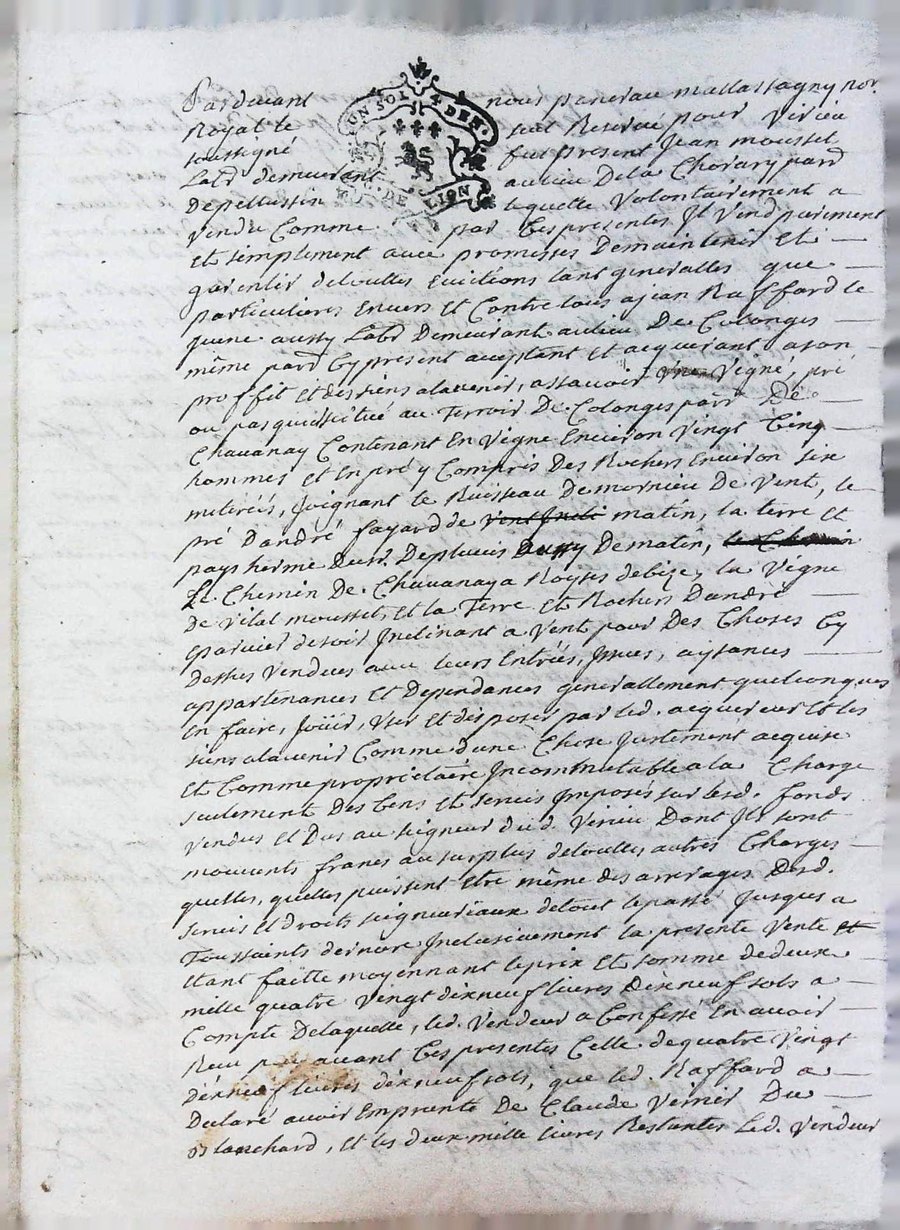 UN SOL 4 DEN.
DE LION
Pardevant nous panerau mallassagny nor.
Royal te sud Reservé pour Virieu
soussigné fut present Jean mousset
Labr demeurant au lieu De la Chorary parr
De pellussin lequelle Volontairement a
Vendu Comme par Ces presentes Il Vend purement
Et simplement avec promesses De maintenir Et
garentir de touttes Evictions tant generalles que
particulieres Envers Et Contre tous a jean Raffard le
jeune aussy Labr Demeurant au lieu De Colonges
même parr Cy present acceptant Et acquerant a son
proffit Et des siens a lavenir, assavoir Vne Vigne, pré
ou pasqui scitué au Terroir De Colonges parr De
Chavanay Contenant En Vigne Environ Vingt Cinq
hommes Et En pré y Compris Des Rochers Environ six
meterées, Joignant le Ruisseau de mornieu De Vent, le
pré Dandré fayard de matin, la terre Et
pays herme Dud. Depluvis aussy De matin,
Le Chemin De Chavanay a Royses de bize, la Vigne
de Vital mousset, Et la Terre Et Rochers Dandré
Epareier de soir Inclinant a Vent pour Des Choses Cy
Dessus Vendues avec leurs Entrées, Jssues, aysances
appartenances Et Dependances generallement quelconques
En faire, Joüir, Vser Et disposer par led. acquereur Et les
siens a lavenir Comme dune Chose Justement acquise
Et Comme proprietaire Incommutable a la Charge
seulement Des Cens Et servis Jmposés sur lesd. fonds
Vendus Et Dus au seigneur dud. Virieu Dont Ils sont
mouvents francs au surplus de touttes autres Charges
quelles, quelles puissent Etre même des arrerages Desd.
servis Et droits seigneuriaux de tout le passé Jusques a
Toussaints dernier Inclusivement la presente Vente
Etant faitte moyennant le prix Et somme de deux
mille quatre Vingt dixneuf livres Dixneuf sols a
Compte De laquelle, led. Vendeur a Confessé En avoir
Reçu par avant Ces presentes Celle de quatre Vingt
dixneuf livres dixneuf sols, que led. Raffard a
Declaré avoir Emprunté De Claude Verrier Du
Blanchard, Et les deux mille livres Restantes Led. Vendeur